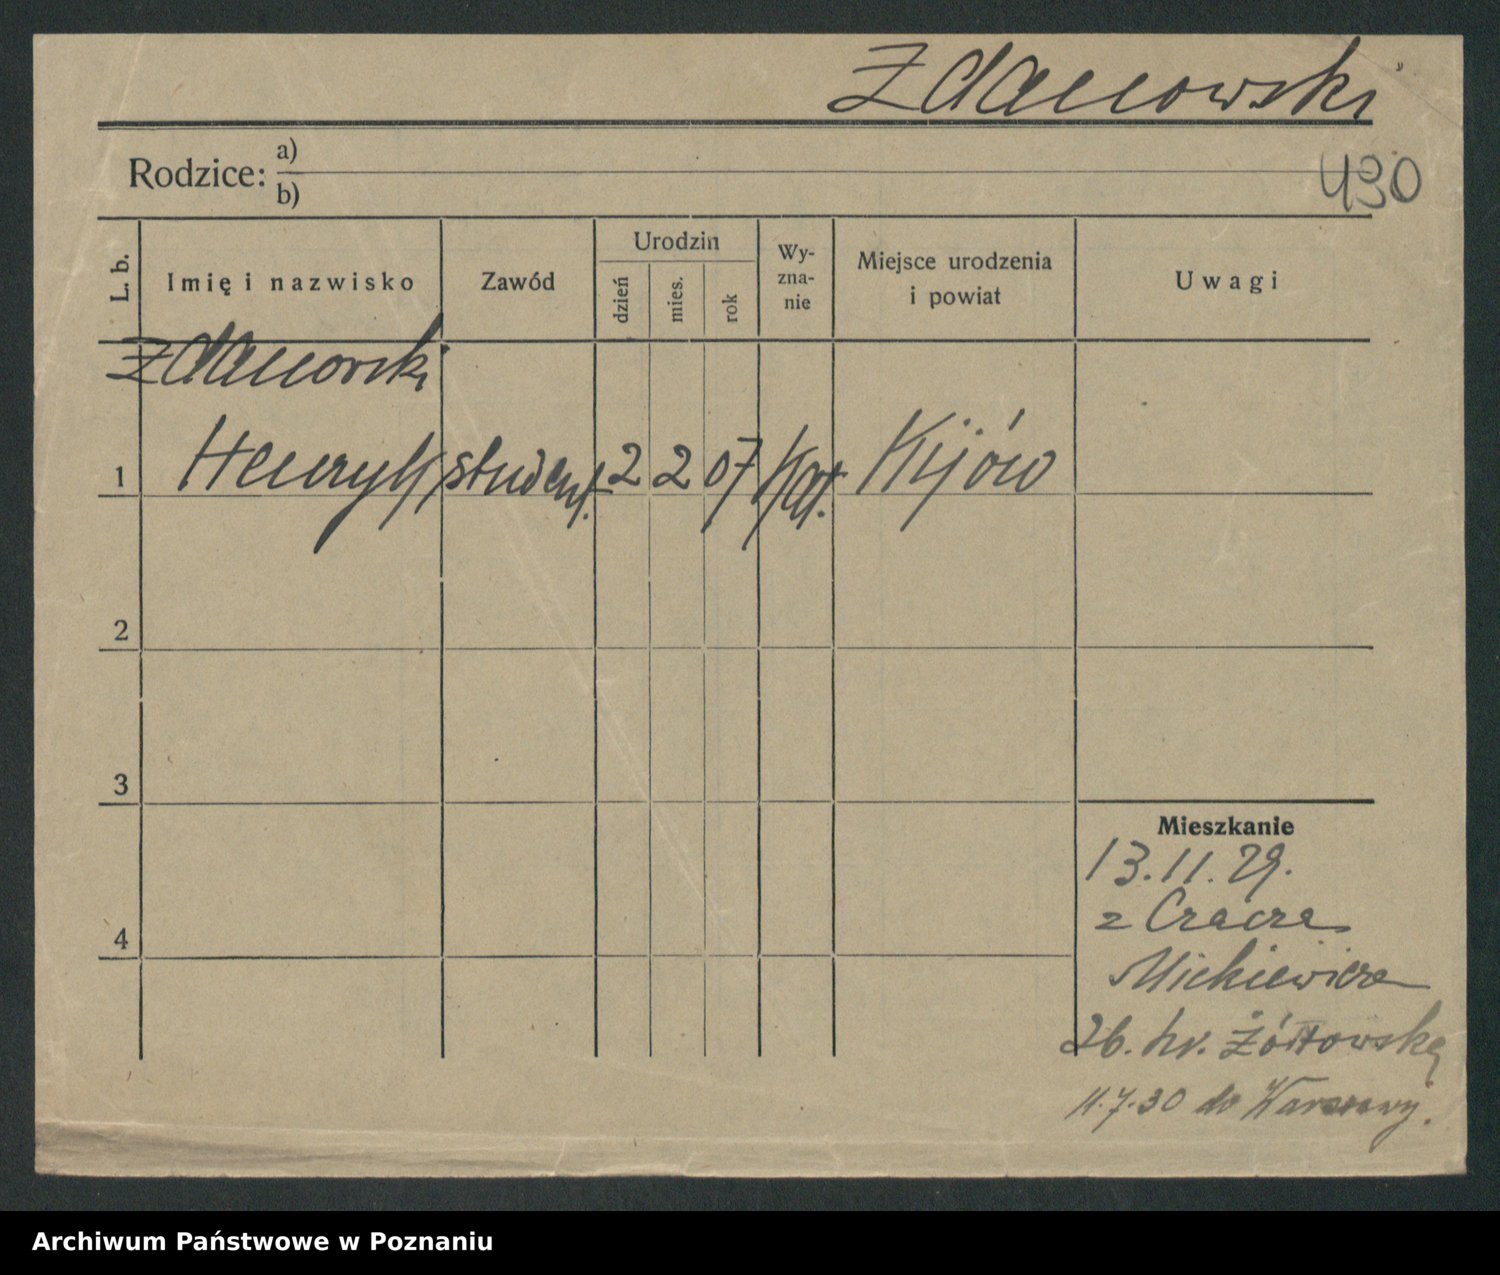 Zdanowski
Rodzice: a)
b)
430
L. b.
Imię i nazwisko
Zawód
Urodzin
dzień
mies.
rok
Wy-
zna-
nie
Miejsce urodzenia
i powiat
Uwagi
Zdanowski
1 Henryk student. 2 2 07 kat. Kijów
2
3
4
Mieszkanie
13.11.29.
z
Mickiewicza
26. hr. Żółtowską
11.7.30 do Warszawy.
Archiwum Państwowe w Poznaniu